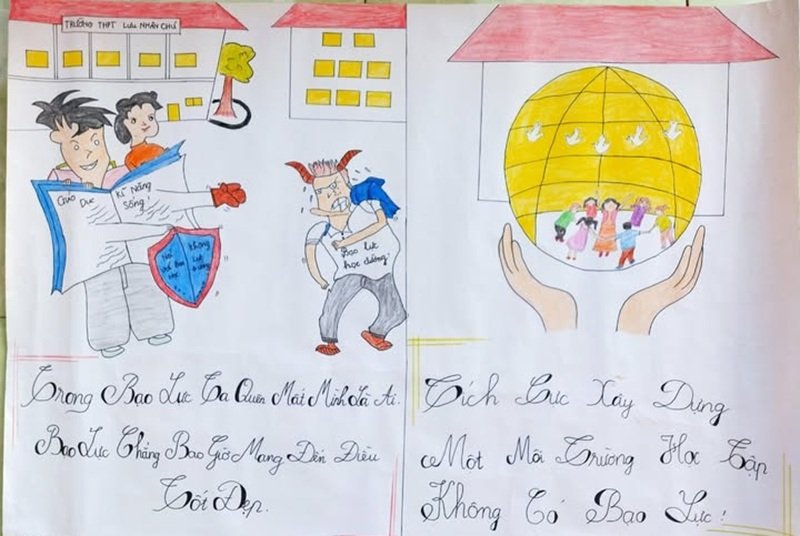 TRƯỜNG THPT LƯU NHÂN CHÚ
Giáo Dục
Kĩ Năng
Sống
Nói
Với Bạo
Học
Không
Lực
Đường
Bạo lực
học đường
Trong Bạo Lực Ta Quên Mất Mình Là Ai.
Bạo Lực Chẳng Bao Giờ Mang Đến Điều
Tốt Đẹp.
Tích Cực Xây Dựng
Một Môi Trường Học Tập
Không Có Bạo Lực!